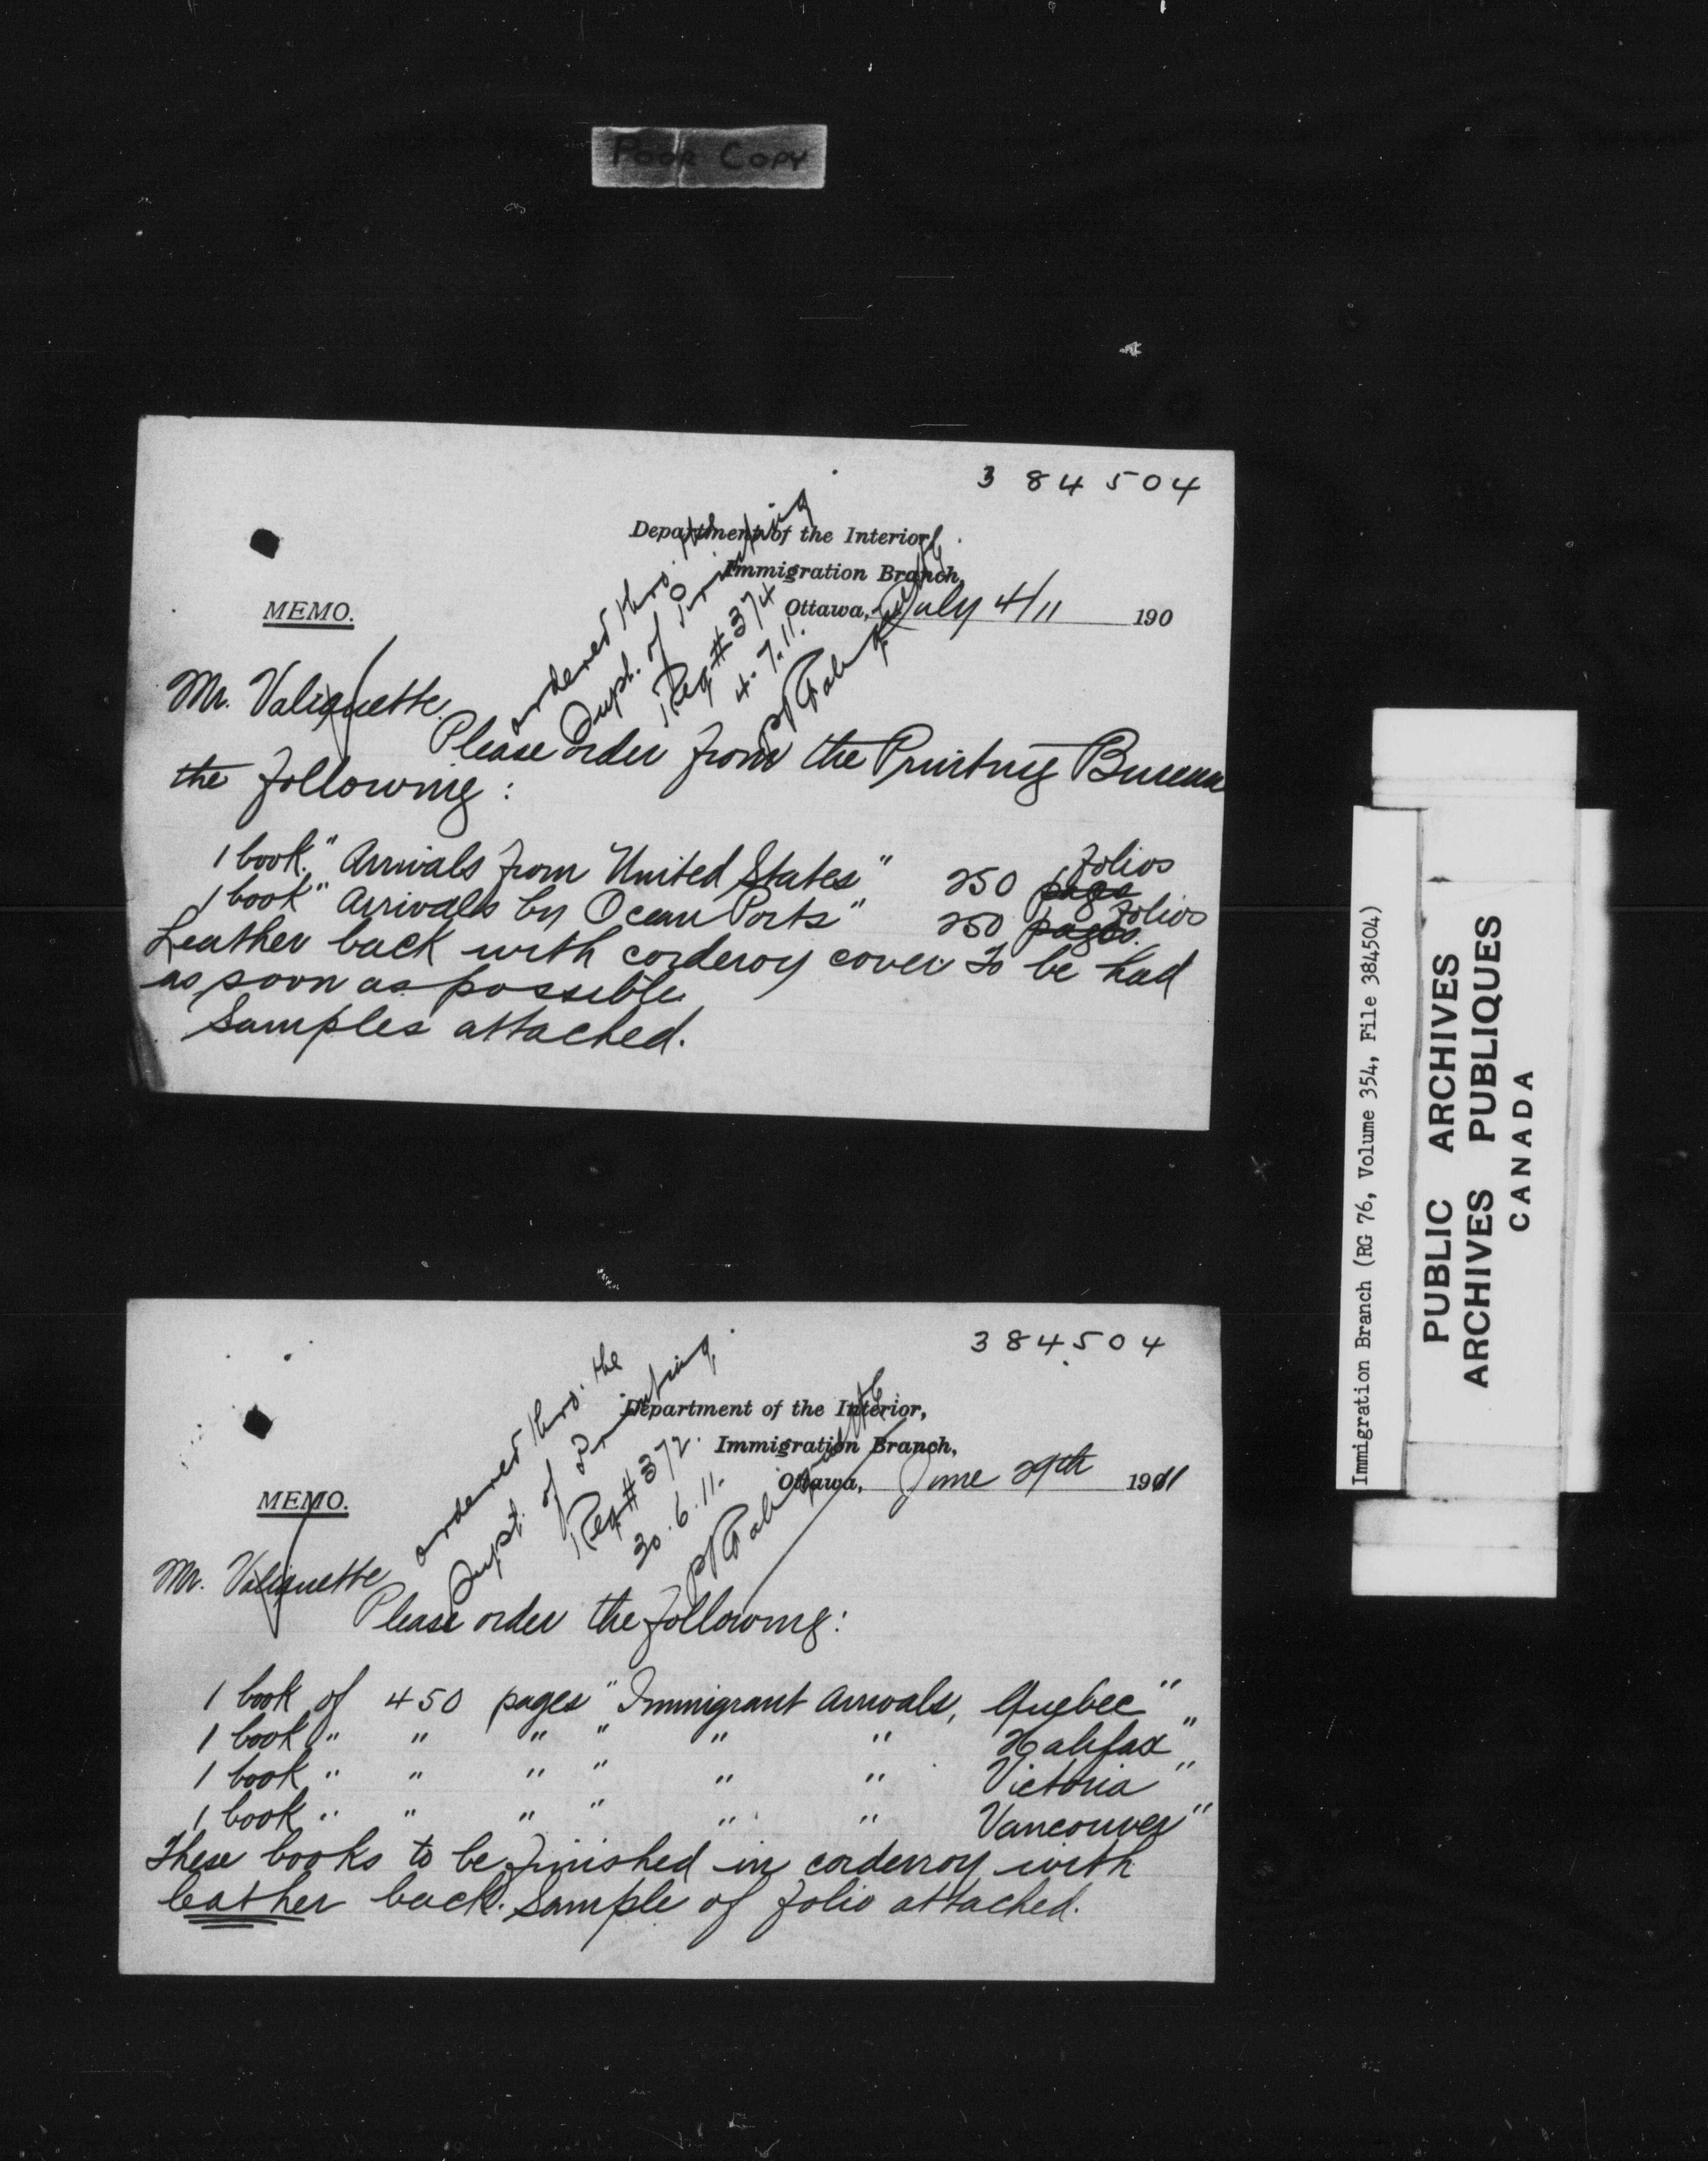 POOR COPY
3 84504
Department of the Interior,
Immigration Branch,
MEMO.
Ottawa, July 4/11 190
ordered thro. the
Supt. of Printing
Req # 374
4.7.11.
Mr. Valiquette
Please order from the Printing Bureau
the following:
1 book "Arrivals from United States" 250 pages folios
1 book "Arrivals by Ocean Ports" 250 pages folios
Leather back with corderoy cover to be had
as soon as possible
Samples attached.
384504
Department of the Interior,
Immigration Branch,
MEMO.
Ottawa, June 29th 1911
ordered thro. the
Supt. of Printing.
Req # 372.
30.6.11.
Mr. Valiquette
Please order the following:
1 book of 450 pages "Immigrant Arrivals, Quebec"
1 book " " " " " " Halifax"
1 book " " " " " " Victoria"
1 book " " " " " " Vancouver"
These books to be finished in corderoy with
leather back. Sample of folio attached.
Immigration Branch (RG 76, Volume 354, File 384504)
PUBLIC ARCHIVES
ARCHIVES PUBLIQUES
CANADA